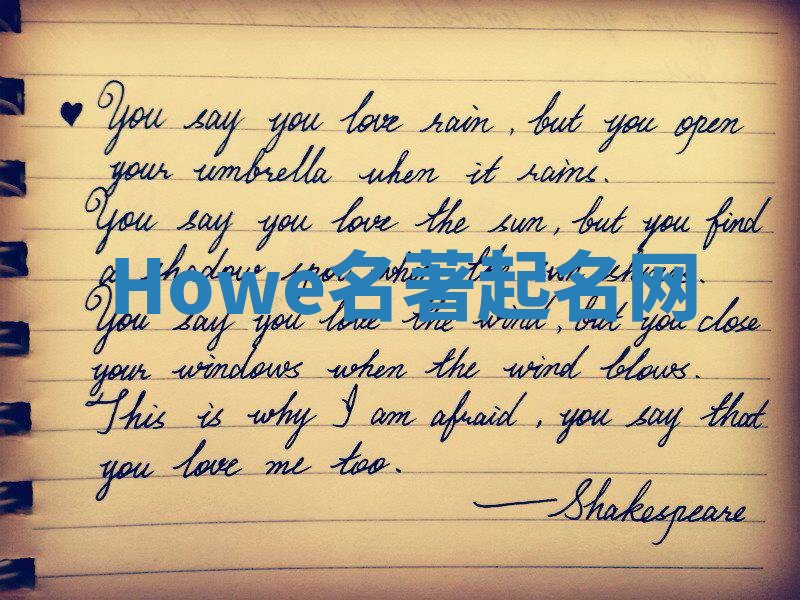 You say you love rain, but you open
your umbrella when it rains.
You say you love the sun, but you find
a shadow spot when the sun shines.
Howe名著起名网
You say you love the wind, but you close
your windows when the wind blows.
This is why I am afraid, you say that
you love me too.
—Shakespeare